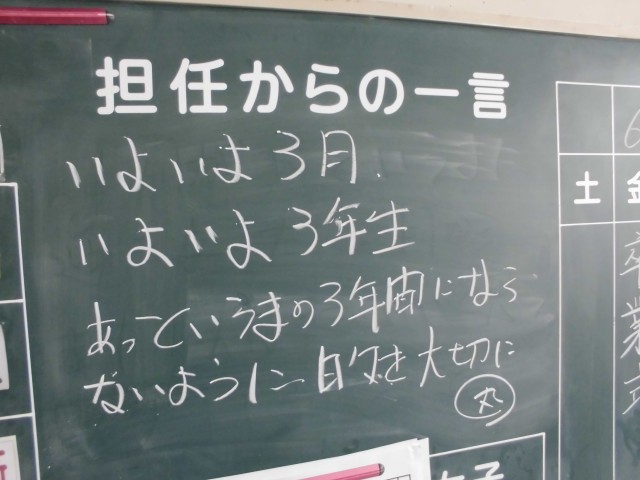 担任からの一言
いよいよ3月.
いよいよ3年生
あっというまの3年間になら
ないように日々を大切に
丸
土 金
卒業式
女子